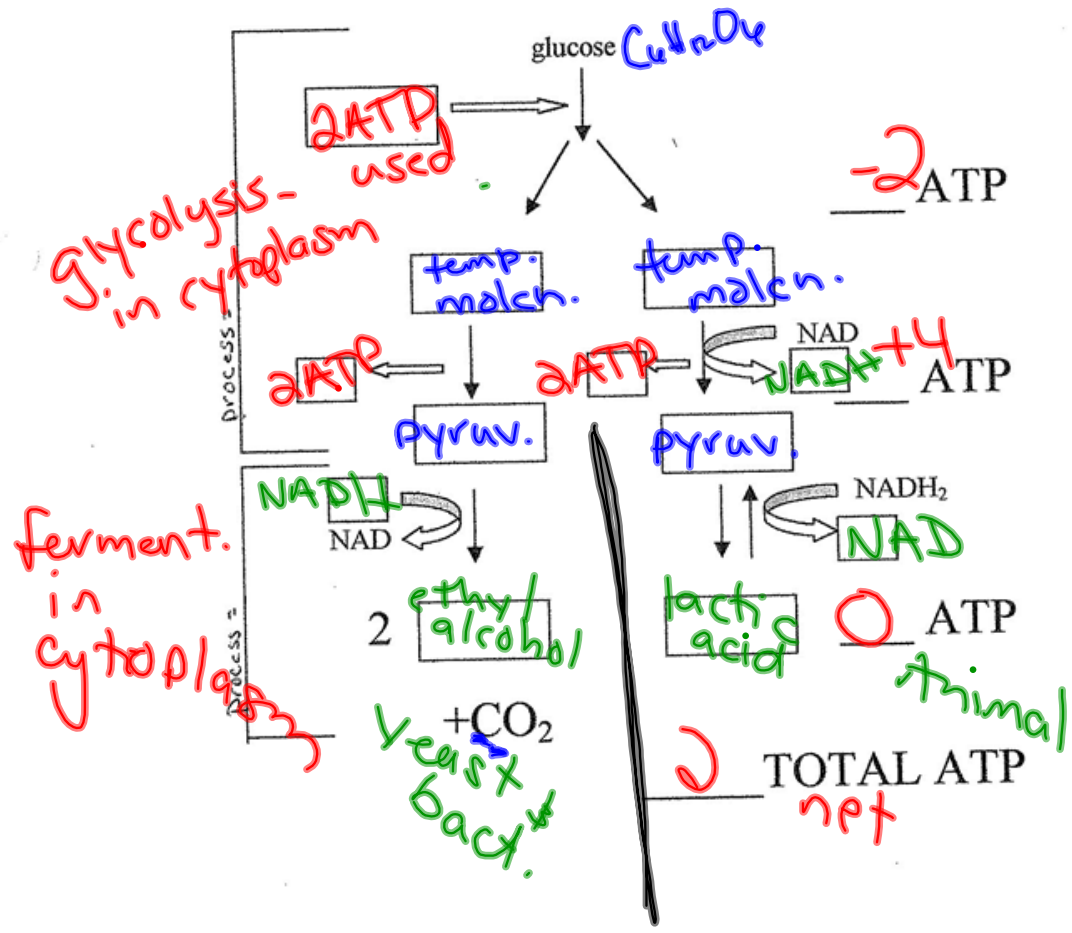 glucose C6H12O6
2ATP
used
-2 ATP
glycolysis-
in cytoplasm
Process =
temp.
molcn.
temp.
molcn.
NAD
NADH
2ATP
2ATP
+4
ATP
pyruv.
pyruv.
NADH
NAD
NADH₂
NAD
ferment.
in
cytoplasm
Process =
2 ethyl
alcohol
lactic
acid
0 ATP
Animal
+CO₂
Yeast
bact.
2 TOTAL ATP
net